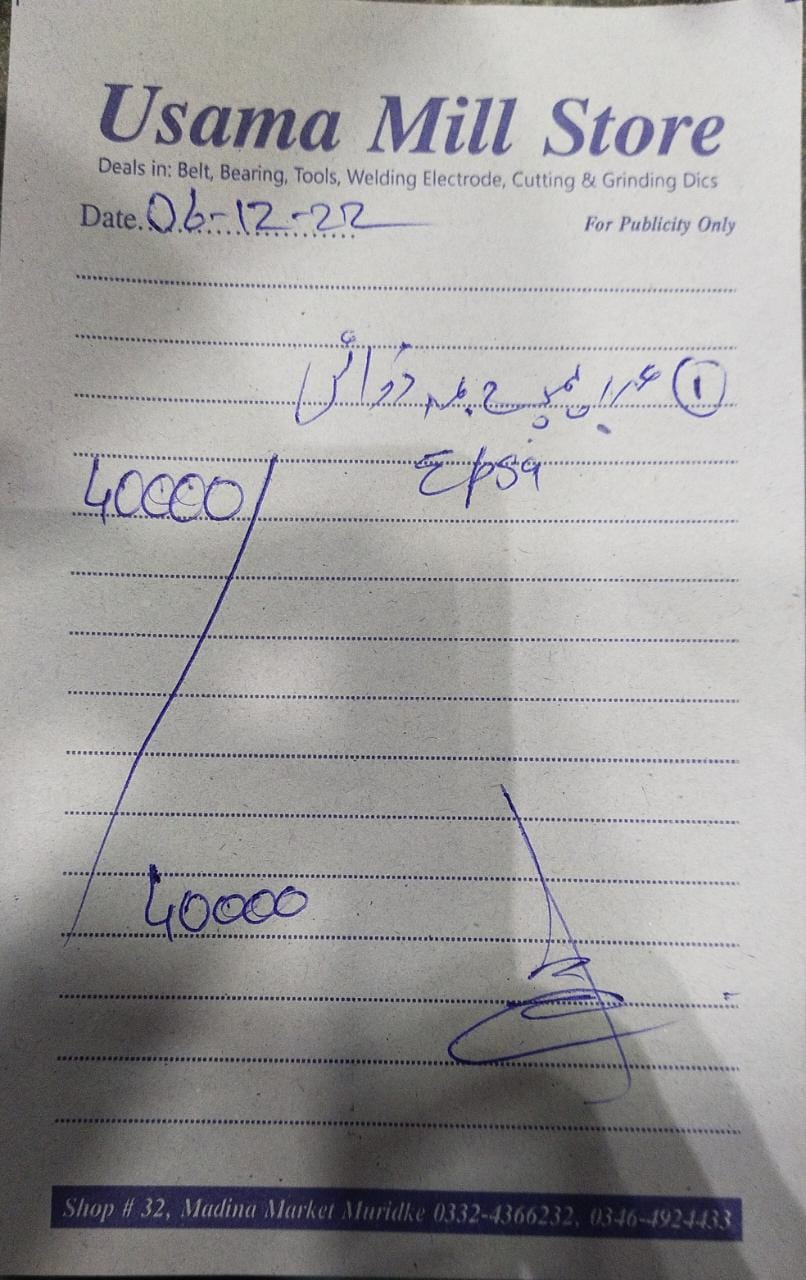 Usama Mill Store
Deals in: Belt, Bearing, Tools, Welding Electrode, Cutting & Grinding Dics
Date. 06-12-22
For Publicity Only
①
40000
40000
Shop # 32, Madina Market Muridke 0332-4366232, 0346-4924433